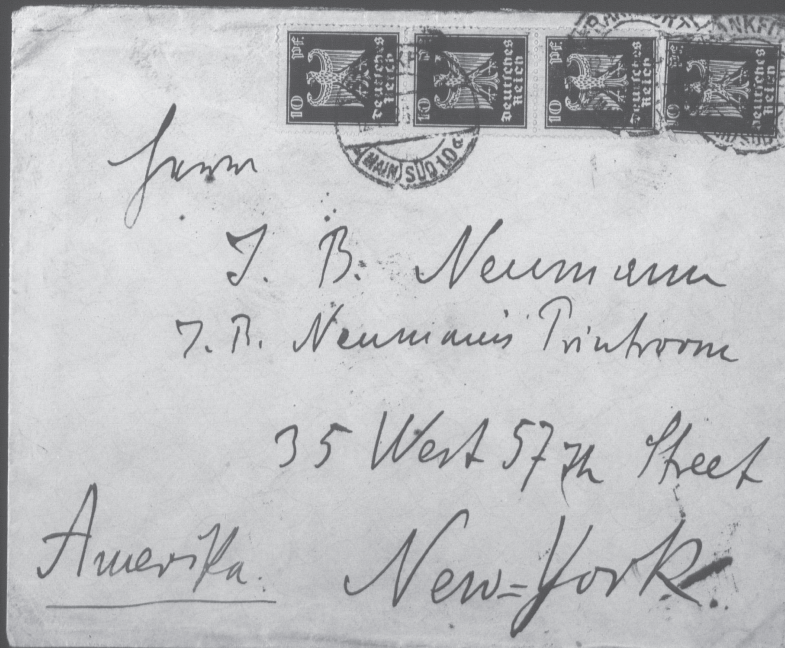 10 Pf. Deutsches Reich
10 Pf. Deutsches Reich
10 Pf. Deutsches Reich
10 Pf. Deutsches Reich
(MAIN) SÜD 10a
FRANKFURT
FRANKFU
Herrn
J. B. Neumann
J. B. Neumanns Printroom
35 West 57th Street
Amerika. New=York.